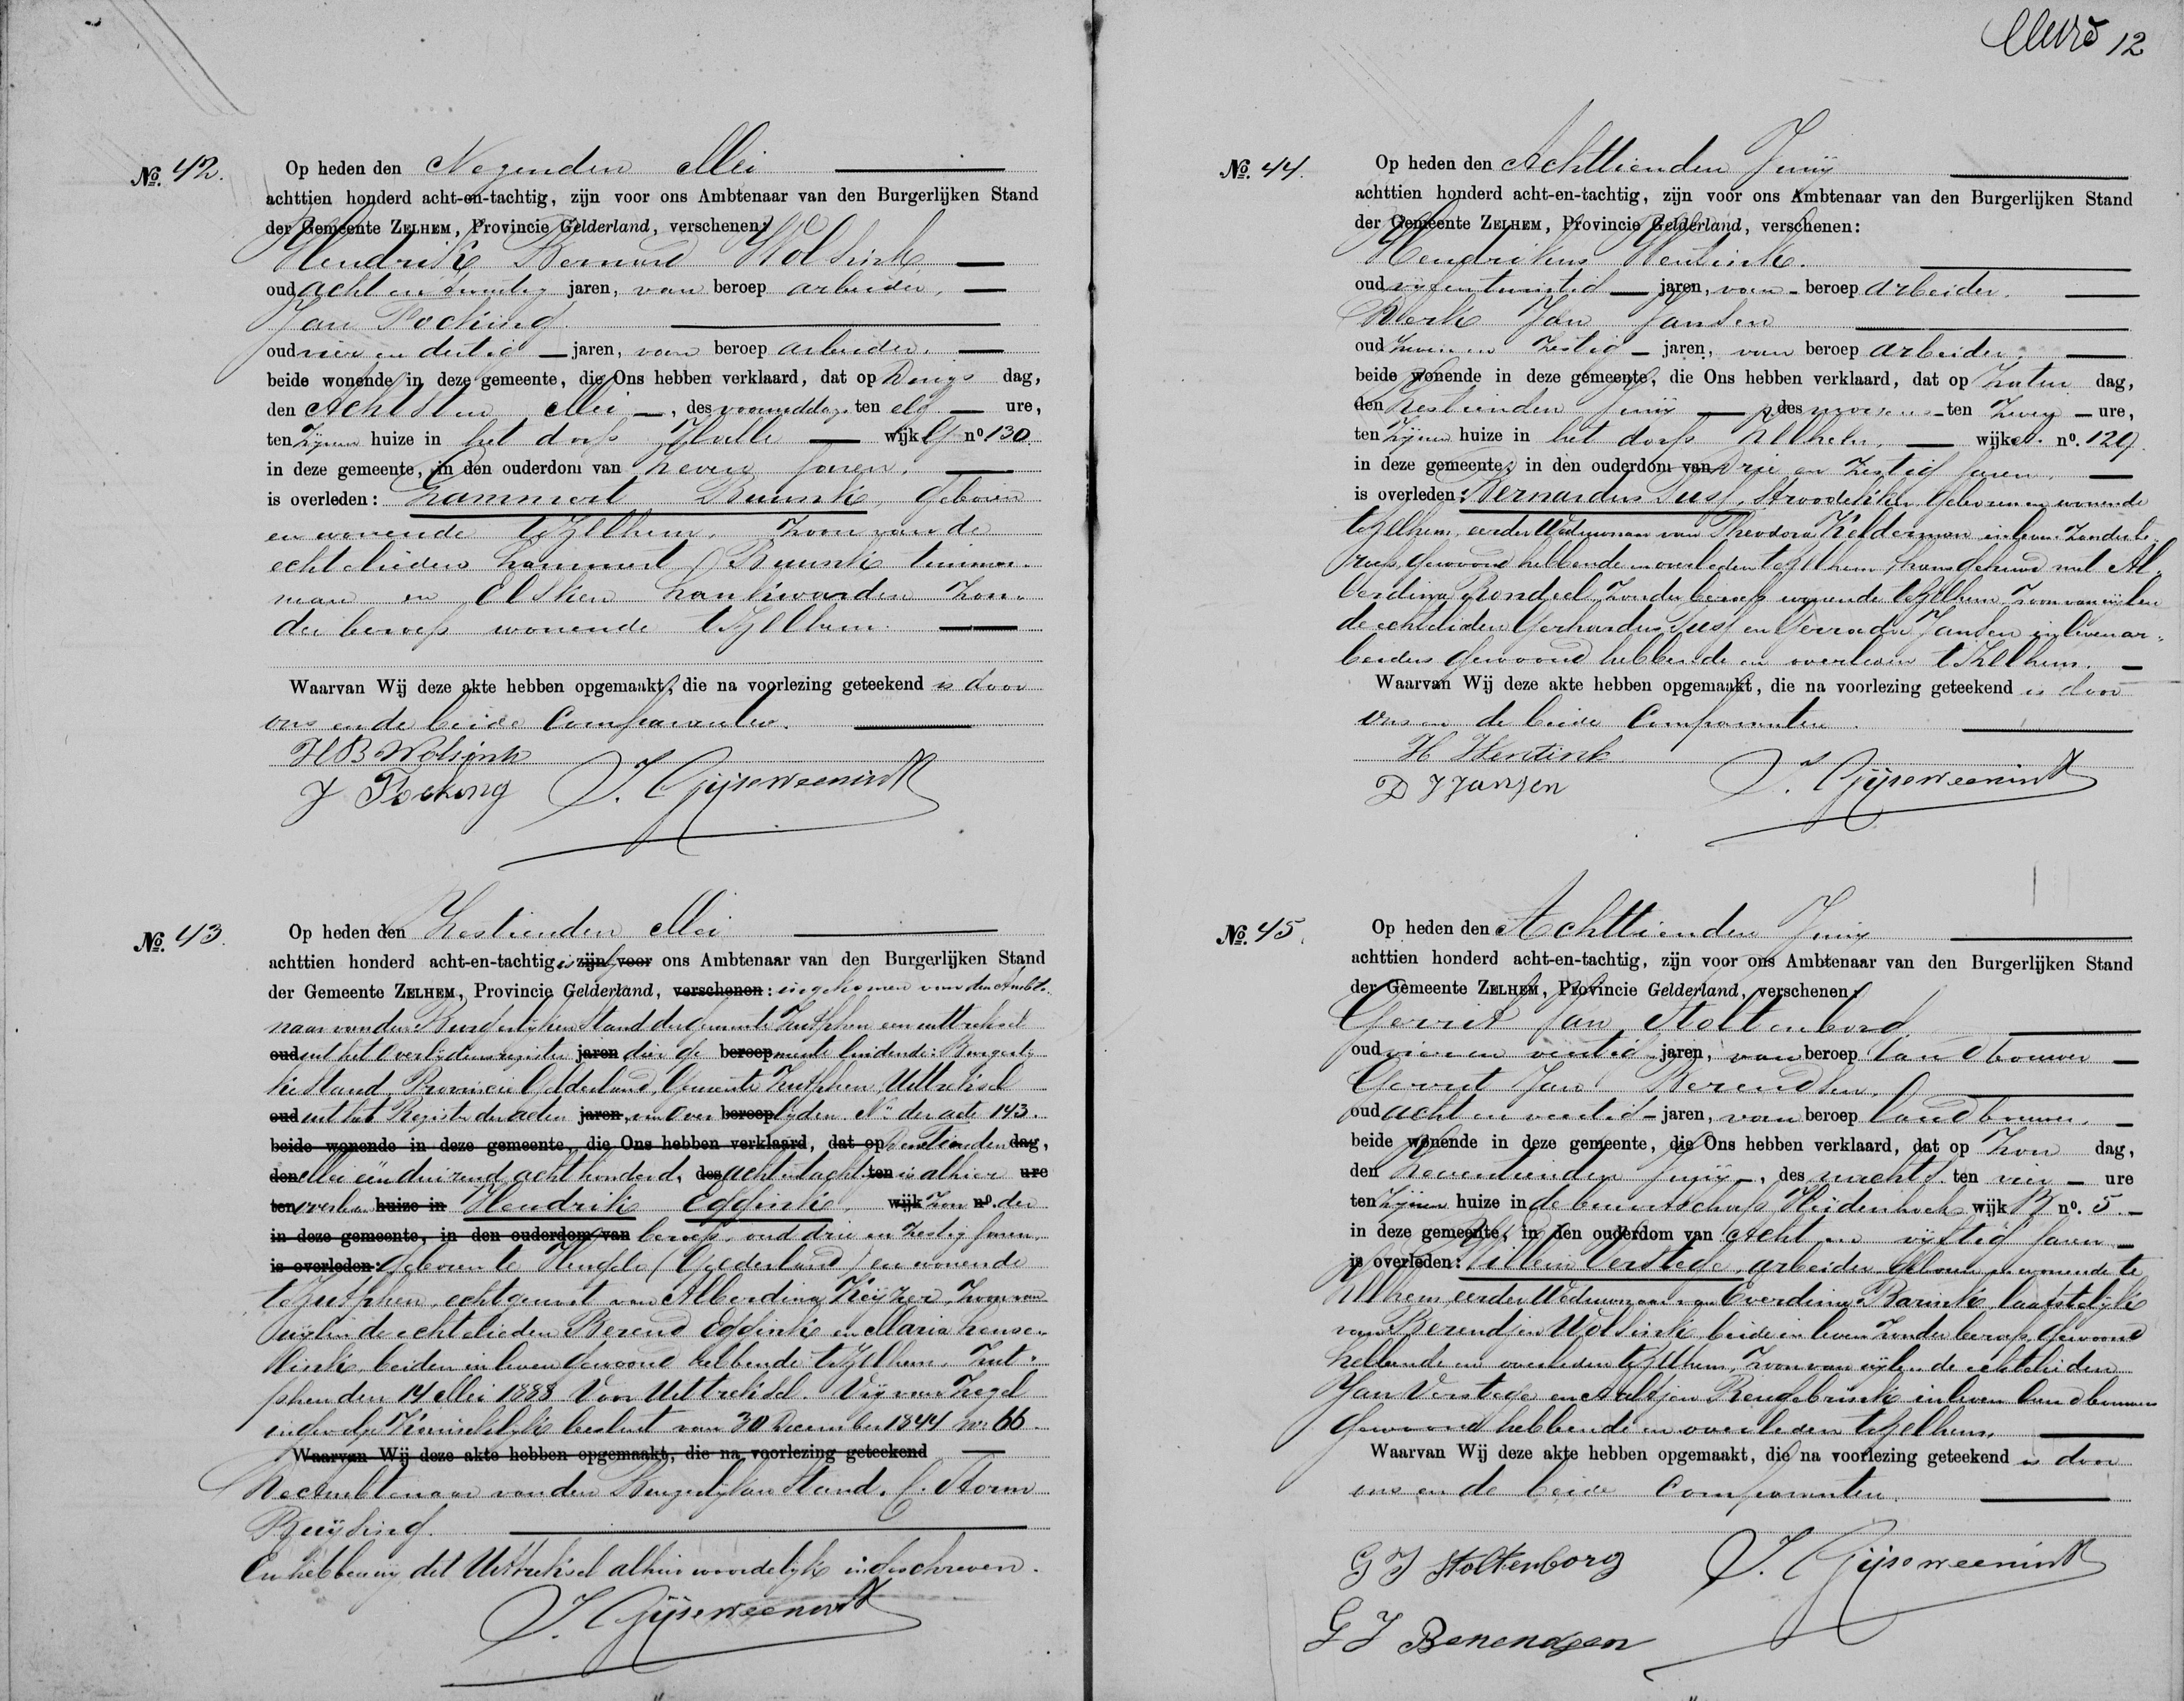 12
No. 42.
Op heden den Negenden Mei
achttien honderd acht-en-tachtig, zijn voor ons Ambtenaar van den Burgerlijken Stand
der Gemeente ZELHEM, Provincie Gelderland, verschenen:
Hendrik Bernard Wolsink
oud acht en twintig jaren, van beroep arbeider,
Jan Focking
oud vier en dertig jaren, van beroep arbeider.
beide wonende in deze gemeente, die Ons hebben verklaard, dat op Dings dag,
den Achtsten Mei, des voormiddags ten elf ure,
ten zijnen huize in het dorp Halle wijk no 130
in deze gemeente, in den ouderdom van jaren.
is overleden: Lammert Ruunk, geboren
en wonende te Zelhem. Zoon van de
echtelieden Lammert Ruunk timmer-
man en Elsken Lankwarden zon-
der beroep wonende te Zelhem.
Waarvan Wij deze akte hebben opgemaakt, die na voorlezing geteekend is door
ons en de beide Comparanten.
HB Wolsink
J Focking J. Gijseweenink
No. 43.
Op heden den Zestienden Mei
achttien honderd acht-en-tachtig, is zijn voor ons Ambtenaar van den Burgerlijken Stand
der Gemeente ZELHEM, Provincie Gelderland, verschenen: ingekomen van den Ambte-
naar van den Burgerlijken Stand der gemeente Zutphen een uittreksel
oud uit het Overlijdensregister jaren dier ge beroep meente luidende: Burgerlij
ke Stand, Provincie Gelderland, Gemeente Zutphen, Uittreksel
oud uit het Register der acten jaren, van Over beroep lijden. No der acte 143.
beide wonende in deze gemeente, die Ons hebben verklaard, dat op den Tienden dag,
den Mei een duizend acht honderd, des acht en tachtig ten is alhier ure
ten overleden huize in Hendrik Eggink, wijk zon no. der
in deze gemeente, in den ouderdom van beroep, oud drie en zestig jaren,
is overleden: geboren te Hengelo (Gelderland) en wonende
te Zutphen, echtgenoot van Alberdina Keijzer, Zoon van
wijlen de echtelieden Berend Eggink en Maria
beiden in leven gewoond hebbende te Zelhem. Zut-
phen den 14 Mei 1888 Voor Uittreksel. Vrij van Zegel
ingevolge Koninklijk besluit van 30 December 1844 no. 66.
Waarvan Wij deze akte hebben opgemaakt, die na voorlezing geteekend
De Ambtenaar van den Burgerlijken Stand. C. Storm
Buijsing.
En hebben wij dit Uittreksel alhier woordelijk ingeschreven.
J. Gijseweenink
No. 44.
Op heden den Achttienden Junij
achttien honderd acht-en-tachtig, zijn voor ons Ambtenaar van den Burgerlijken Stand
der Gemeente ZELHEM, Provincie Gelderland, verschenen:
Hendrikus Wentink.
oud vijfentwintig jaren, van beroep arbeider.
Derk Jan Jansen
oud zeven en zestig jaren, van beroep arbeider,
beide wonende in deze gemeente, die Ons hebben verklaard, dat op Zatur dag,
den Zestienden Junij, des morgens ten zeven ure,
ten zijnen huize in het dorp Zelhem, wijk no. 129.
in deze gemeente, in den ouderdom van Drie en zestig jaren,
is overleden: Bernardus geboren en wonende
te Zelhem, eerder Weduwnaar van Theodora Kelderman in leven zonder be-
roep, gewoond hebbende en overleden te Zelhem, thans gehuwd met Al-
berdina Rondeel, zonder beroep wonende te Zelhem, zoon van wijlen
de echtelieden Gerhardus en Gerradina Jansen in leven ar-
beiders gewoond hebbende en overleden te Zelhem.
Waarvan Wij deze akte hebben opgemaakt, die na voorlezing geteekend is door
ons en de beide Comparanten
H Wentink
D J Jansen J. Gijseweenink
No. 45.
Op heden den Achttienden Junij
achttien honderd acht-en-tachtig, zijn voor ons Ambtenaar van den Burgerlijken Stand
der Gemeente ZELHEM, Provincie Gelderland, verschenen:
Gerrit Jan Stoltenborg
oud vier en veertig jaren, van beroep landbouwer
Gerrit Jan Berendsen,
oud acht en veertig jaren, van beroep landbouwer.
beide wonende in deze gemeente, die Ons hebben verklaard, dat op Zon dag,
den Zeventienden Junij, des nachts ten vier ure
ten zijnen huize in de buurtschap Heidenhoek wijk B no. 5.
in deze gemeente, in den ouderdom van Acht en vijftig jaren
is overleden: Willem Verstege, arbeider geboren en wonende te
Zelhem, eerder Weduwnaar van Everdina Barink, laatstelijk
van Berendjen Wolsink beide in leven zonder beroep, gewoond
hebbende en overleden te Zelhem, zoon van wijlen de echtelieden
Jan Verstege en Aaltjen Rengelink in leven landbouwers
gewoond hebbende en overleden te Zelhem.
Waarvan Wij deze akte hebben opgemaakt, die na voorlezing geteekend is door
ons en de beide Comparanten.
G J Stoltenborg J. Gijseweenink
G J Berendsen